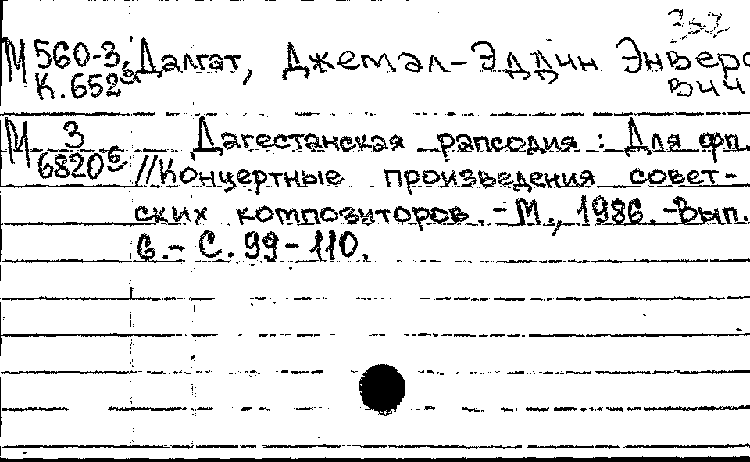 М 560-3, Далгат, Джемал-Эддин Энверо
К.652 вич
М 3 Дагестанская рапсодия : Для фп.
6820 //Концертные произведения совет-
ских композиторов. - М., 1986. -Вып.
6. - С. 99-110.